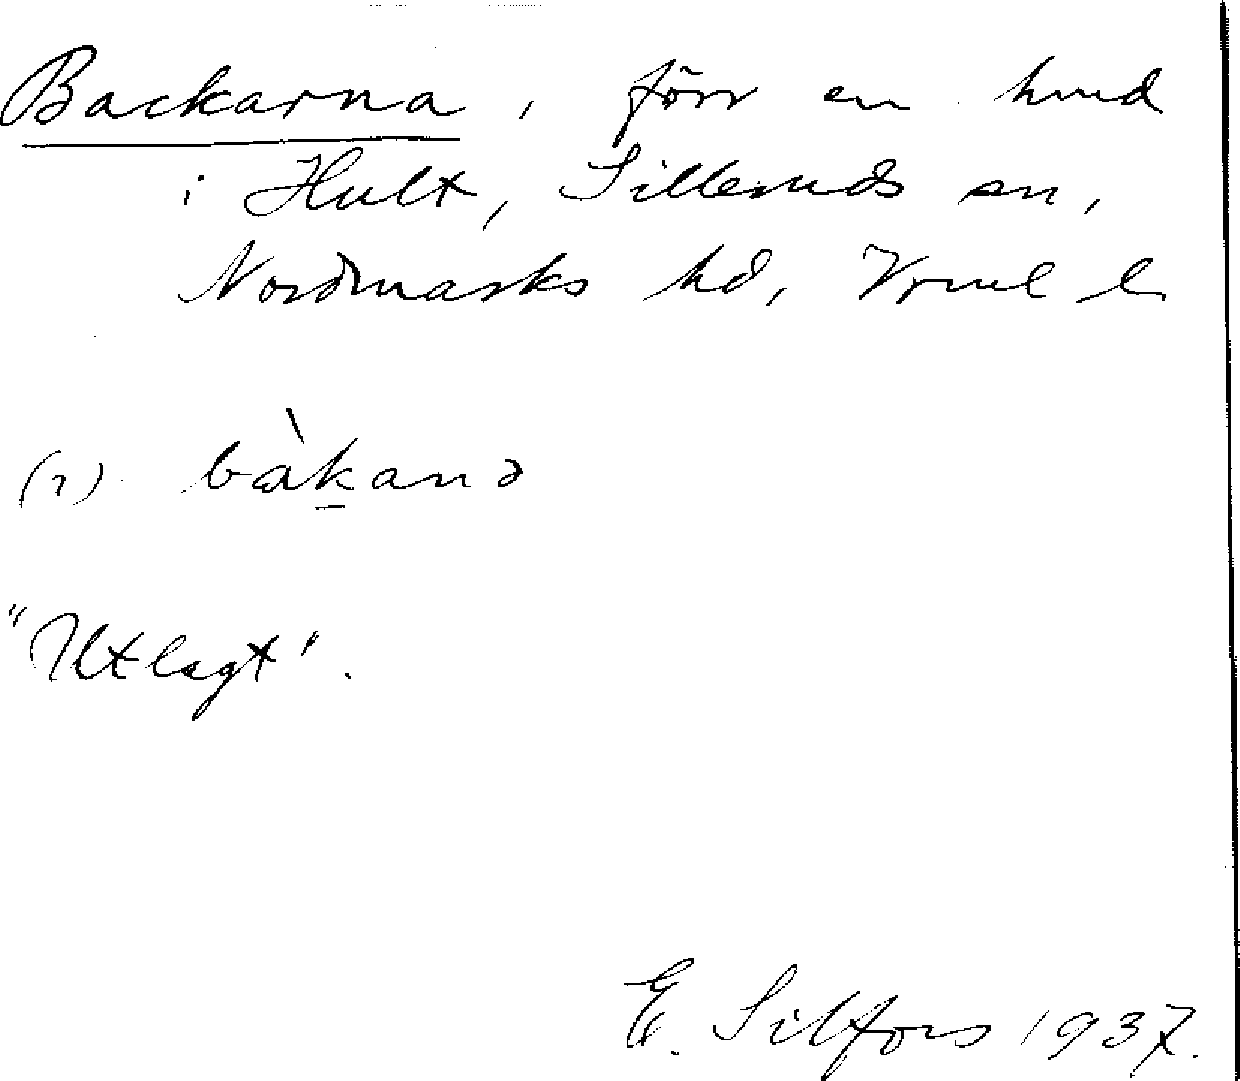 Backarna, förr en hmd
i Hult, Silleruds sn,
Nordmarks hd, Vrml l.
(1) bàkanə
"Utlagt".
E. Silfors 1937.